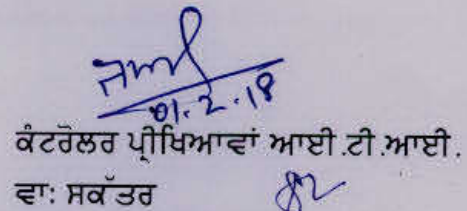 01.2.18
ਕੰਟਰੋਲਰ ਪ੍ਰੀਖਿਆਵਾਂ ਆਈ.ਟੀ.ਆਈ.
ਵਾ: ਸਕੱਤਰ